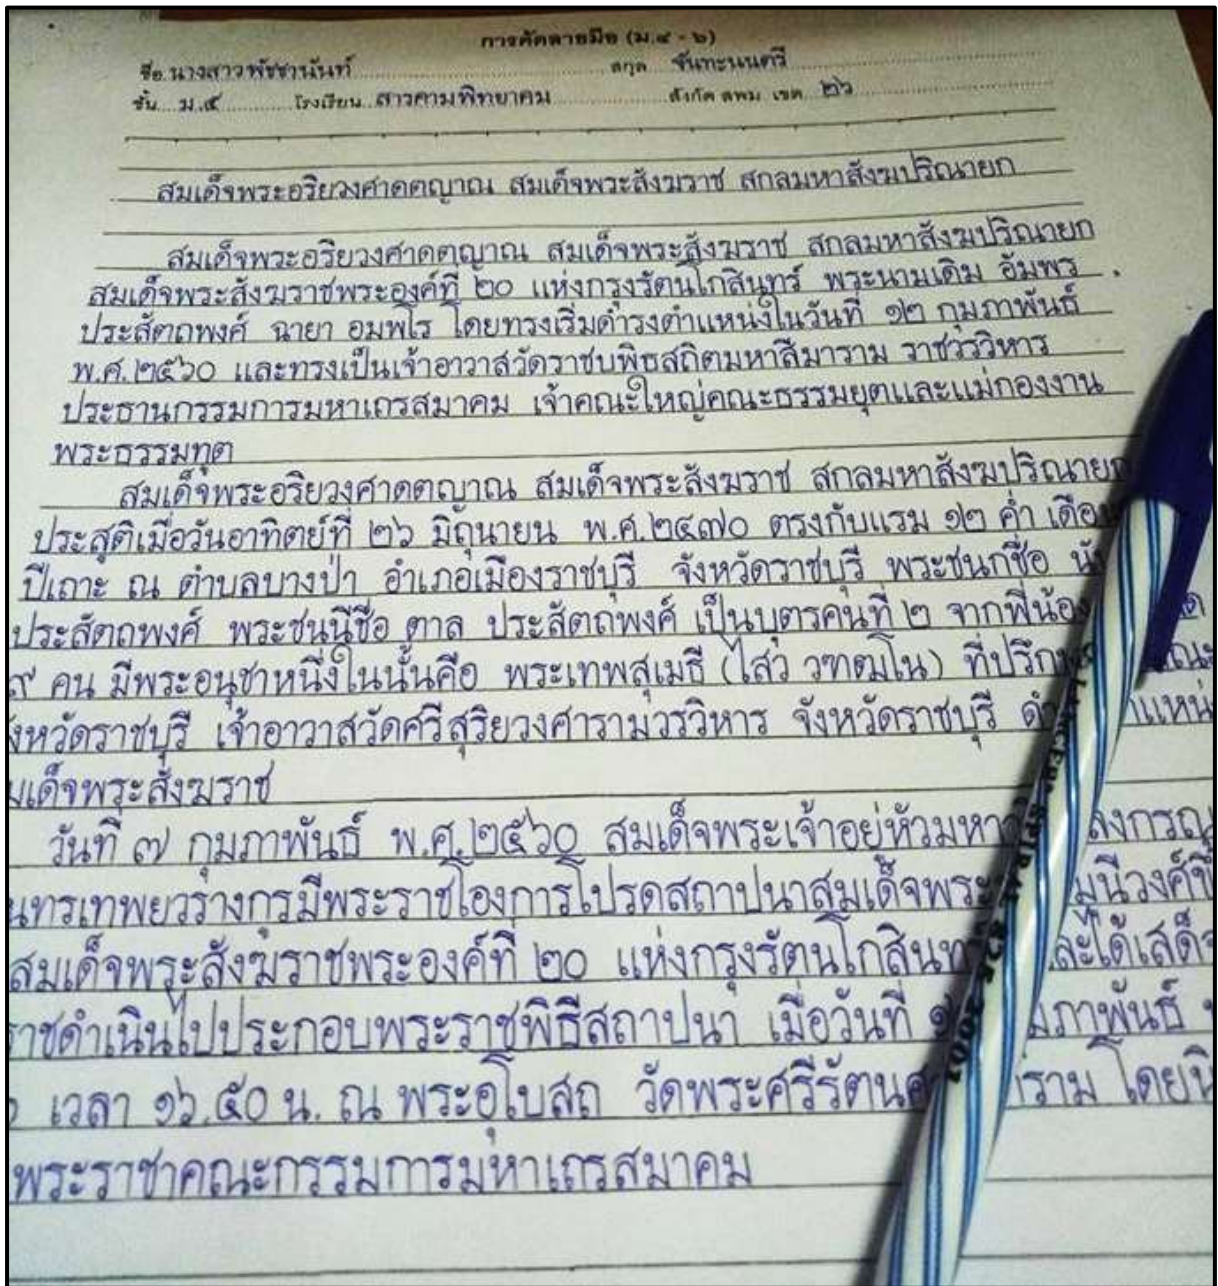 การคัดลายมือ (ม.๔ - ๖)
ชื่อ นางสาวพัชชานันท์ สกุล จันทะนนตรี
ชั้น ม.๕ โรงเรียน สารคามพิทยาคม สังกัด สพม. เขต ๒๖
สมเด็จพระอริยวงศาคตญาณ สมเด็จพระสังฆราช สกลมหาสังฆปริณายก
สมเด็จพระอริยวงศาคตญาณ สมเด็จพระสังฆราช สกลมหาสังฆปริณายก
สมเด็จพระสังฆราชพระองค์ที่ ๒๐ แห่งกรุงรัตนโกสินทร์ พระนามเดิม อัมพร
ประสัตถพงศ์ ฉายา อมพโร โดยทรงเริ่มดำรงตำแหน่งในวันที่ ๑๒ กุมภาพันธ์
พ.ศ.๒๕๖๐ และทรงเป็นเจ้าอาวาสวัดราชบพิธสถิตมหาสีมาราม ราชวรวิหาร
ประธานกรรมการมหาเถรสมาคม เจ้าคณะใหญ่คณะธรรมยุตและแม่กองงาน
พระธรรมทูต
สมเด็จพระอริยวงศาคตญาณ สมเด็จพระสังฆราช สกลมหาสังฆปริณายก
ประสูติเมื่อวันอาทิตย์ที่ ๒๖ มิถุนายน พ.ศ.๒๔๗๐ ตรงกับแรม ๑๒ ค่ำ เดือน
ปีเถาะ ณ ตำบลบางป่า อำเภอเมืองราชบุรี จังหวัดราชบุรี พระชนกชื่อ
ประสัตถพงศ์ พระชนนีชื่อ ตาล ประสัตถพงศ์ เป็นบุตรคนที่ ๒ จากพี่น้อง
๙ คน มีพระอนุชาหนึ่งในนั้นคือ พระเทพสุเมธี (ไสว วฑฒโน) ที่ปรึกษา
งหวัดราชบุรี เจ้าอาวาสวัดศรีสุริยวงศารามวรวิหาร จังหวัดราชบุรี
มเด็จพระสังฆราช
วันที่ ๗ กุมภาพันธ์ พ.ศ.๒๕๖๐ สมเด็จพระเจ้าอยู่หัวมหา ลงกรณ
นทรเทพยวรางกูรมีพระราชโองการโปรดสถาปนาสมเด็จพระ มุนีวงศ์ขึ้
สมเด็จพระสังฆราชพระองค์ที่ ๒๐ แห่งกรุงรัตนโกสินท ละได้เสด็จ
ราชดำเนินไปประกอบพระราชพิธีสถาปนา เมื่อวันที่ มภาพันธ์
เวลา ๑๖.๕๐ น. ณ พระอุโบสถ วัดพระศรีรัตนศ าราม โดยนิ
พระราชาคณะกรรมการมหาเถรสมาคม